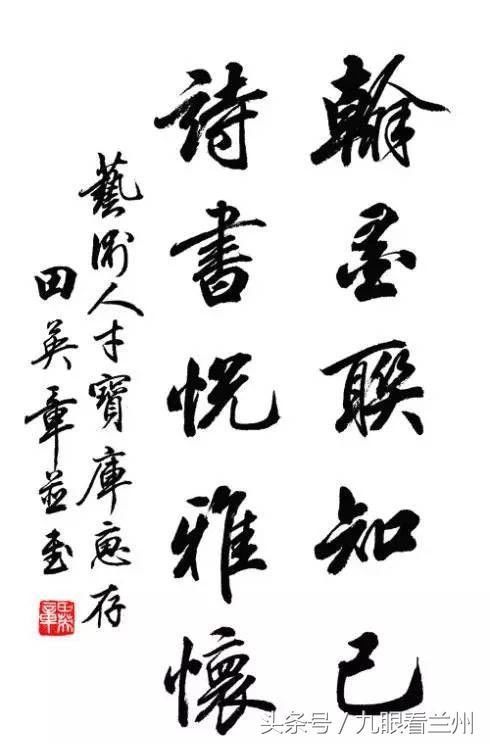 翰墨聯知己
詩書悦雅懷
藝術人才寶庫惠存
田英章並書
田英章
头条号/九眼看兰州